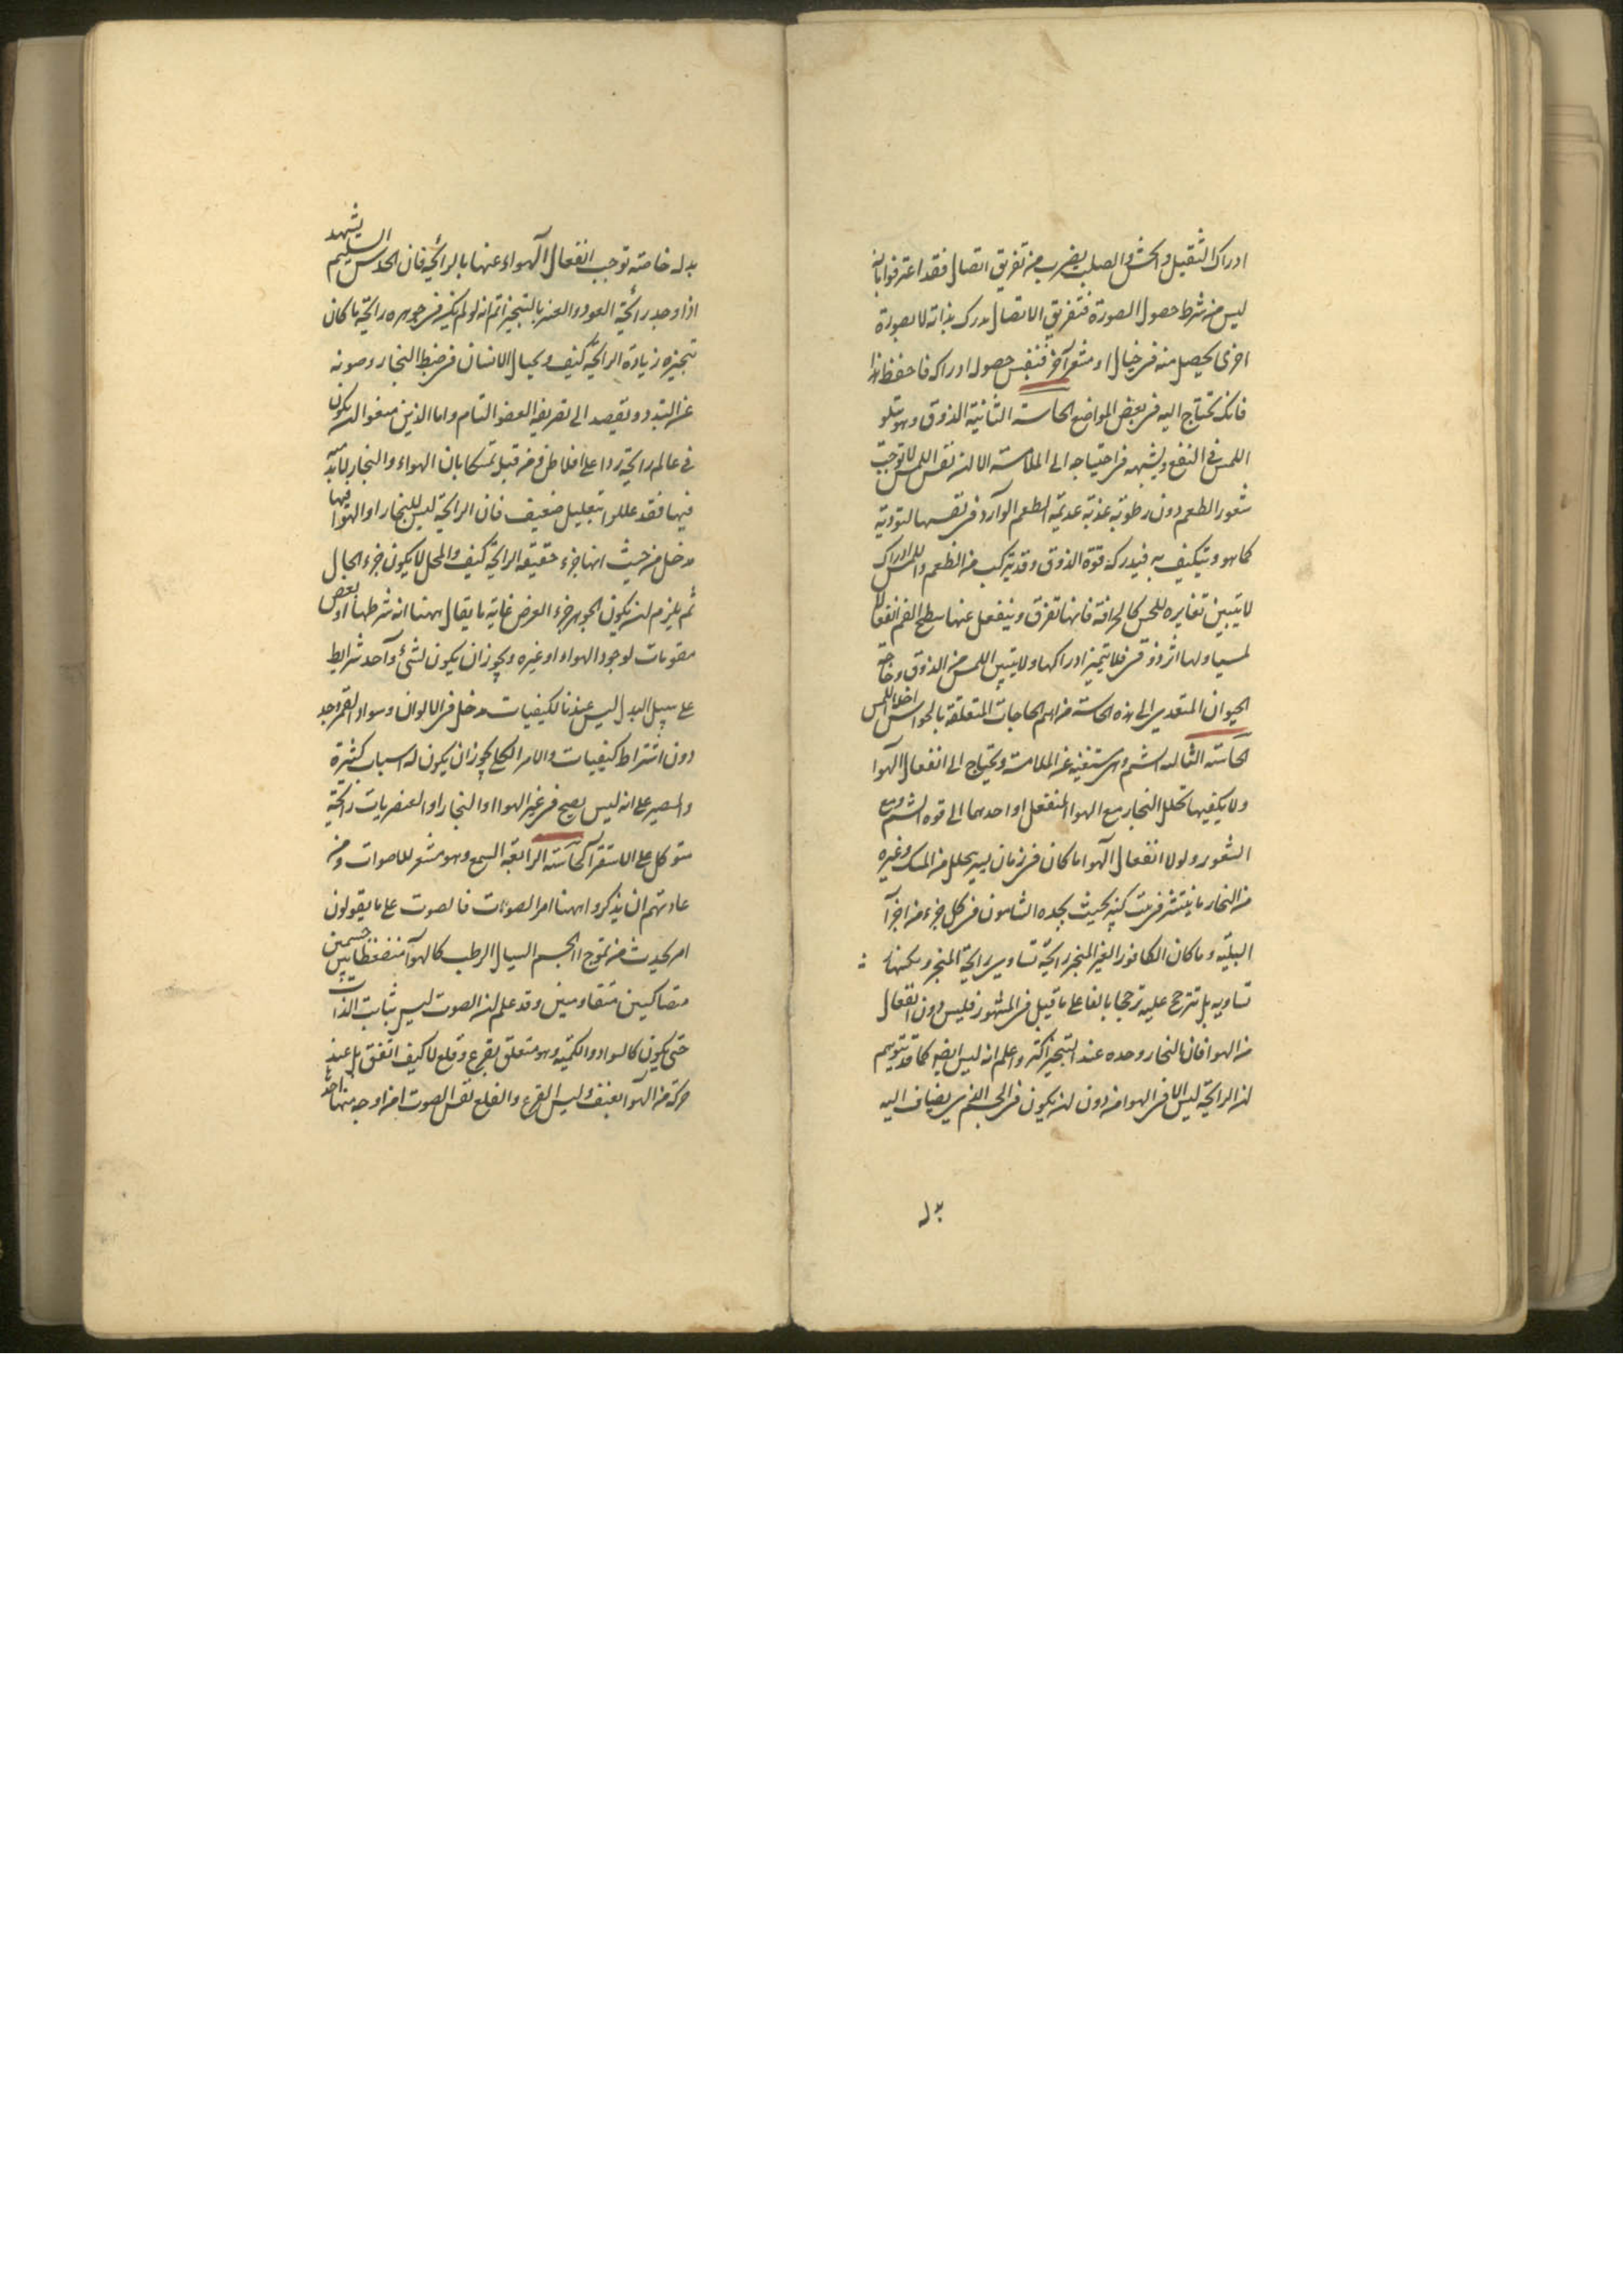 ادراك الثقيل والخشن والصلب بضرب من تفريق اتصال فقد اعترفوا بانه
ليس من شرط حصول الصورة فتفريق الاتصال مدرك بذاته لا بصورة
اخرى يحصل منه في خيال او مشعر آخر فنفس حصوله ادراك فاحفظ هذا
فانك تحتاج اليه في بعض المواضع الحاسة الثانية الذوق وهو يتلو
اللمس في النفع ويشبهه في احتياجه الى الملامسة الا ان نفس اللمس لا توجب
شعور الطعم دون رطوبة عذبة عديمة الطعم الوارد في نفسها لتؤديه
كما هو ويتكيف به فيدركه قوة الذوق وقد يتركب من الطعم واللمس ادراك
لا يتبين تغايره للحس كالحرافة فانها تفرق وينفعل عنها سطح الفم انفعالا
لمسيا ولها اثر ذوقي فلا يتميز ادراكها ولا يتبين اللمس من الذوق وحاجة
الحيوان المتغذى الى هذه الحاسة من اهم الحاجات المتعلقة بالحواس اخلا اللمس
الحاسة الثالثة الشم وهى مستغنية عن الملامسة ويحتاج الى انفعال الهوا
ولا يكفيها تحلل البخار مع الهوا المنفعل او احدهما الى قوه الشم ومع
الشعور ولولا انفعال الهوا ما كان في زمان يسير يحلل من المسك وغيره
من البخار ما ينتشر في بيت كبير بحيث يجده الشامون في كل جزء من اجزآ
البيت وما كان الكافور الغير المبخر رائحته تساوى رائحة المبخر ولكنها
تساويه بل تترجح عليه ترجحا بالغا على ما قيل في المشهور فليس دون انفعال
من الهوا فان البخار وحده عند التبخير اكثر واعلم انه ليس ايضا كما قد يتوهم
ان الرائحة ليس الا في الهوا من دون ان يكون في الجسم الذي يضاف اليه
بل
بل له خاصته توجب انفعال الهواء عنها بالرائحة فان الحدس السليم يشهد
اذا وجد رائحة العود والعنبر بالتبخير ثم انه لو لم يكن في جوهره رائحة ما كان
تبخيره زيادة الرائحة كيف ويحتال الانسان في ضبط البخار وصونه
عن التبدد ويقصد الى تصريفه العضو الشام واما الذين منعوا ان يكون
في عالم رائحة ردا على افلاطن ومن قبله تمسكا بان الهواء والبخار لا بد منه
فيها فقد عللوا بتعليل ضعيف فان الرائحة ليس للبخار او الهوا فيها
مدخل من حيث انها جزء حقيقة الرائحة كيف والمحل لا يكون جزء الحال
ثم يلزم ان يكون الجوهر جزء العرض غاية ما يقال ههنا انه شرطها او بعض
مقومات لوجود الهواء او غيره ويجوز ان يكون لشئ واحد شرايط
على سبيل البدل ليس عندنا لكيفيات مدخل في الالوان وسواد القمر وجد
دون اشتراط كيفيات والامر الكلى يجوز ان يكون له اسباب كثيرة
والمصير على انه ليس يصح في غير الهوا او البخار او العنصريات رائحة
متوكل على الاستقرآ الحاسة الرابعة السمع وهو مشعر للاصوات ومن
عادتهم ان يذكروا ههنا امر الصوت فالصوت على ما يقولون
امر يحدث من تموج الجسم السيال الرطب كالهوآ منضغطا بين جسمين
متصاكين متقاومين وقد علم ان الصوت ليس بثابت الذات
حتى يكون كالسواد والكمية وهو متعلق بقرع وقلع لا كيف اتفق بل عند
حركة من الهوآ بعنف وليس القرع والقلع نفس الصوت